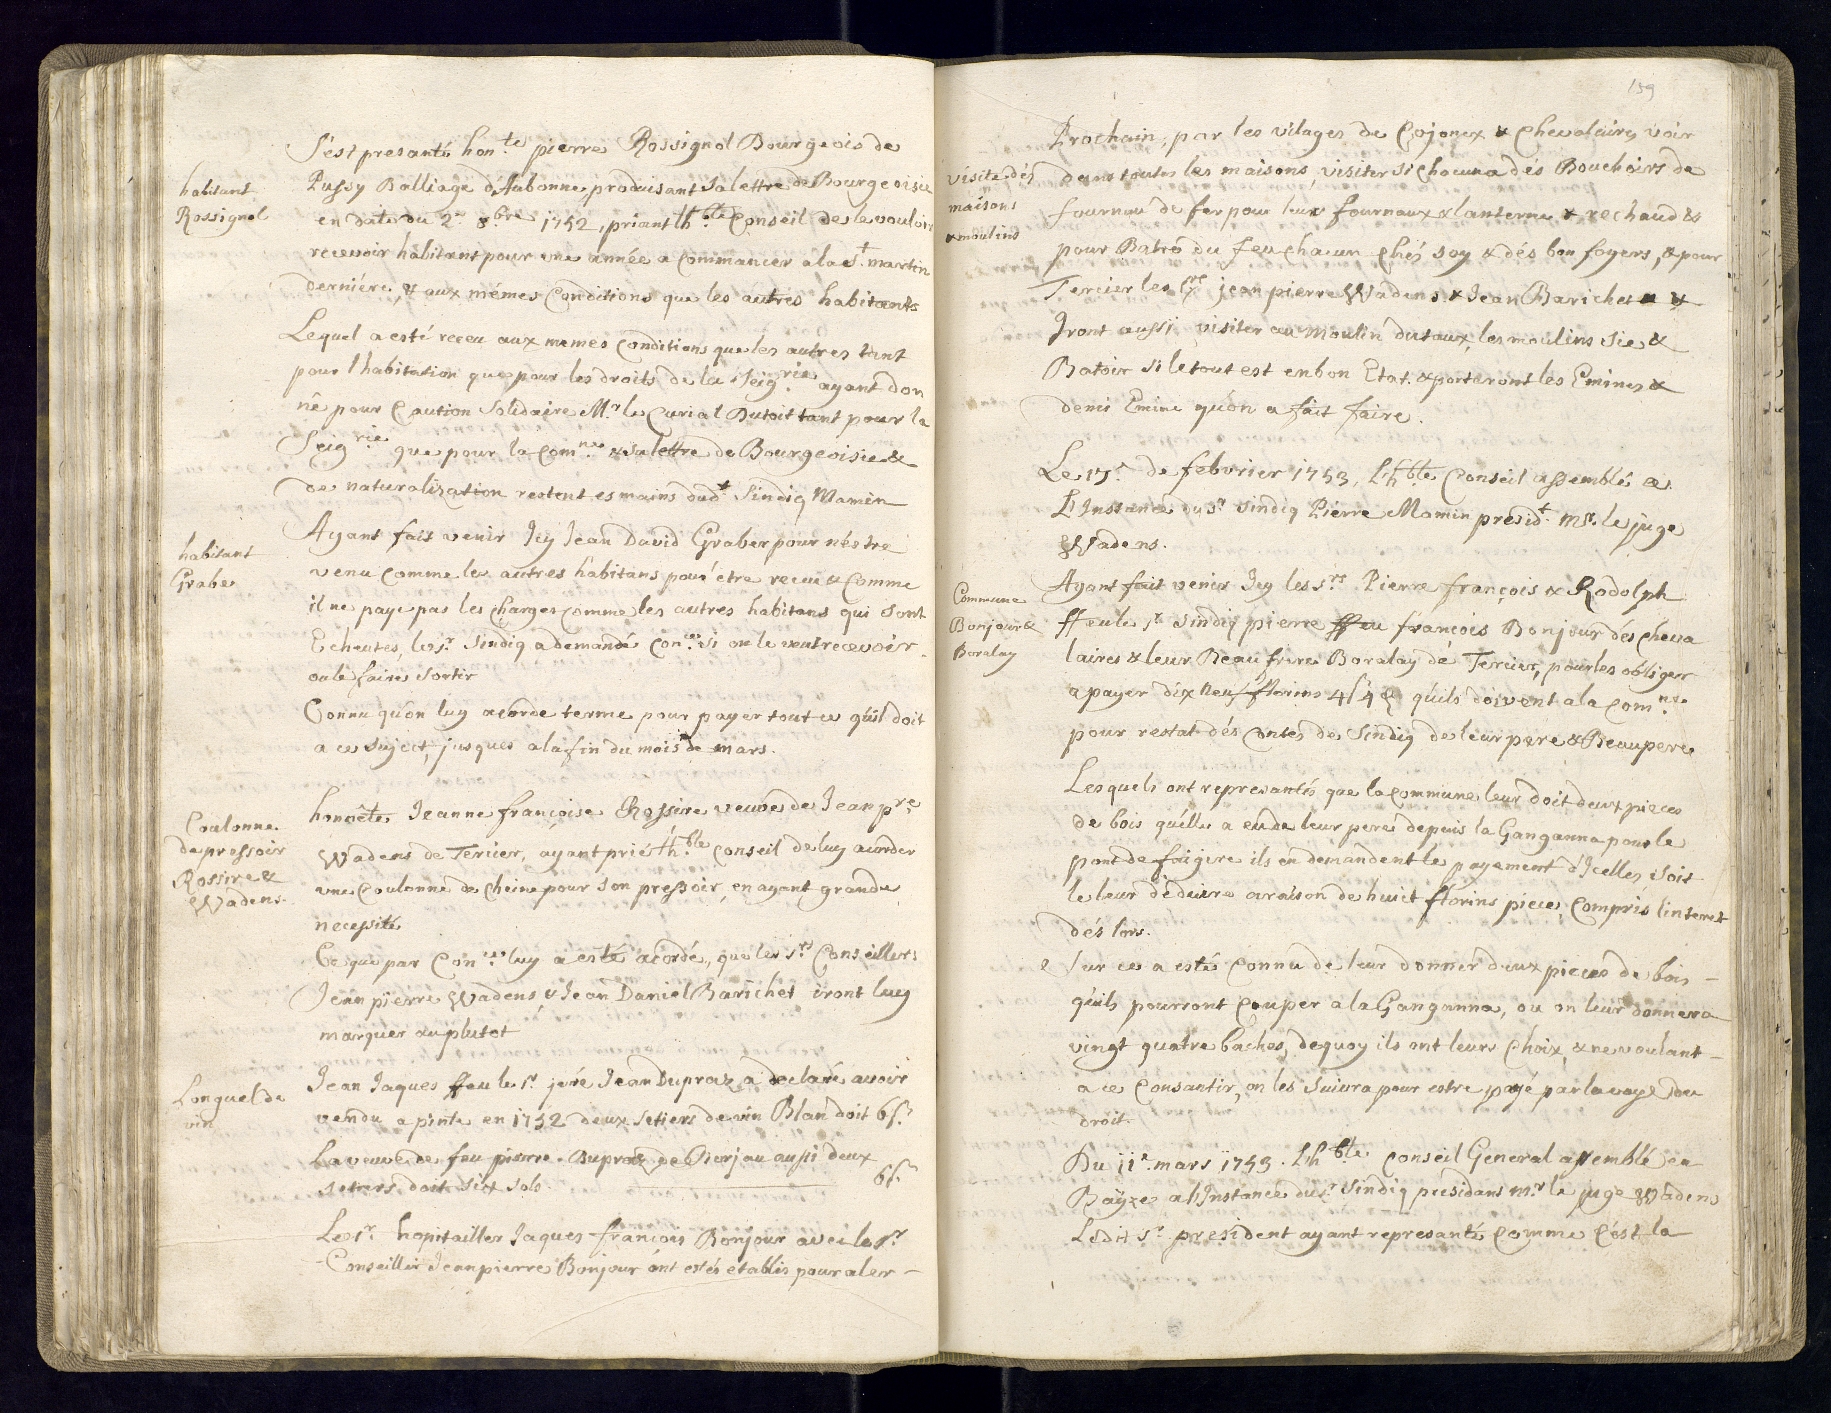 S'est presanté hon.te pierre Rossignol Bourgeois de
habitant
Rossignol
Pussy Balliage d'Aubonne, produisant sa lettre de Bourgeoisie
en date du 2e 8bre 1752, priant lh.ble Conseil de le vouloir
recevoir habitant pour une année a commancer a la St. martin
derniére, & aux mémes Conditions que les autres habitants
Lequel a esté receu aux memes Conditions que les autres tant
pour l'habitation que pour les droits de la Seig.rie ayant don
né pour Caution Solidaire Mr. le Curial Dutoit tant pour la
Seig.rie que pour la Com.ne & sa lettre de Bourgeoisie &
de naturalization restent es mains dud.t Sindiq Mamin
habitant
Grabe
Ayant fait venir Icy Jean David Graber pour n'éstre
venu comme les autres habitans pour étre receu & comme
il ne paye pas les Charges comme les autres habitans qui sont
Echeutes, le sr. Sindiq a demandé Con.ce si on le veut recevoir
ou le faire sortir
Connu qu'on luy acorde terme pour payer tout ce qu'il doit
a ce suject, jusques a la fin du mois de mars.
Coulonne
de pressoir
Rossire &
Wadens
honnête Jeanne françoise Rossire veuve de Jean pre.
Wadens de Tercier, ayant priés lh.ble conseil de luy acorder
une Coulonne de Cheine pour son pressoir, en ayant grande
necessité
Ce que par Con.ce luy a esté acordé, que les srs. Conseillers
Jean pierre Wadens & Jean Daniel Barichet iront luy
marquer au plutot
Longuel de
vin
Jean Jaques ffeu le sr. juré Jean Dupraz a declaré avoir
vendu a pinte en 1752 deux setiers de vin Blan doit 6 s.
La veuve de feu pierre Dupraz de aussi deux
setiers doit six sols. 6 s.
Le sr. hopitailler Jaques françois Bonjour avec le sr.
Conseiller Jean pierre Bonjour ont estés établis pour aler
159
Prochain, par les vilages de Cojonex & Chevalaires voir
visite dés
maisons
& moulins
dans toutes les maisons, visiter si chacun a dés Bouchoirs de
fourneau de fer pour leur fournaux & lanterne & rechauds
pour Batre du feu chacun chés soy & dés bon foyers, & pour
Tercier les srs. jean pierre Wadens & Jean Barichet &
Iront aussi visiter au moulin dutaux, les moulins Sie &
Batoir si le tout est en bon Etat, & porteront les Emines &
demi Emine qu'on a fait faire.
Le 15e. de febvrier 1753, Lh.ble Conseil assemblé a
L'Instance du sr. sindiq Pierre Mamin presid.t Mr. le juge
Wadens.
Commune
Bonjour &
Boralay
Ayant fait venir Icy les srs. Pierre françois & Rodolph
ffeu le sr. Sindiq pierre ffeu françois Bonjour dés cheva
laires & leur Beau frere Boralay de Tercier, pour les obliger
a payer dix neuf florins 4 s 4 d qu'ils doivent a la Com.ne
pour restat dés Contes de Sindiq de leur pere & Beau pere
Lesquels ont represantés que la commune leur doit deux pieces
de bois qu'elle a eu de leur pere depuis la Ganganna pour le
pont de faigire ils en demandent le payement d'Icelles soit
le leur déduire a raison de huict florins piece, Compris l'interet
dés lors.
Sur ce a esté Connu de leur donner deux pieces de bois
qu'ils pourront Couper a la Ganganna, ou on leur donnera
vingt quatre baches, dequoy ils ont leurs choix, & ne voulant
a ce Consantir, on les suivra pour estre payé par la voye du
droit.
Du 11e. mars 1753. Lh.ble Conseil General assemblé en
Bayze a l'Instance du sr. Sindiq presidant Mr. le juge Wadens
Ledit sr. president ayant represanté Comme c'ést la